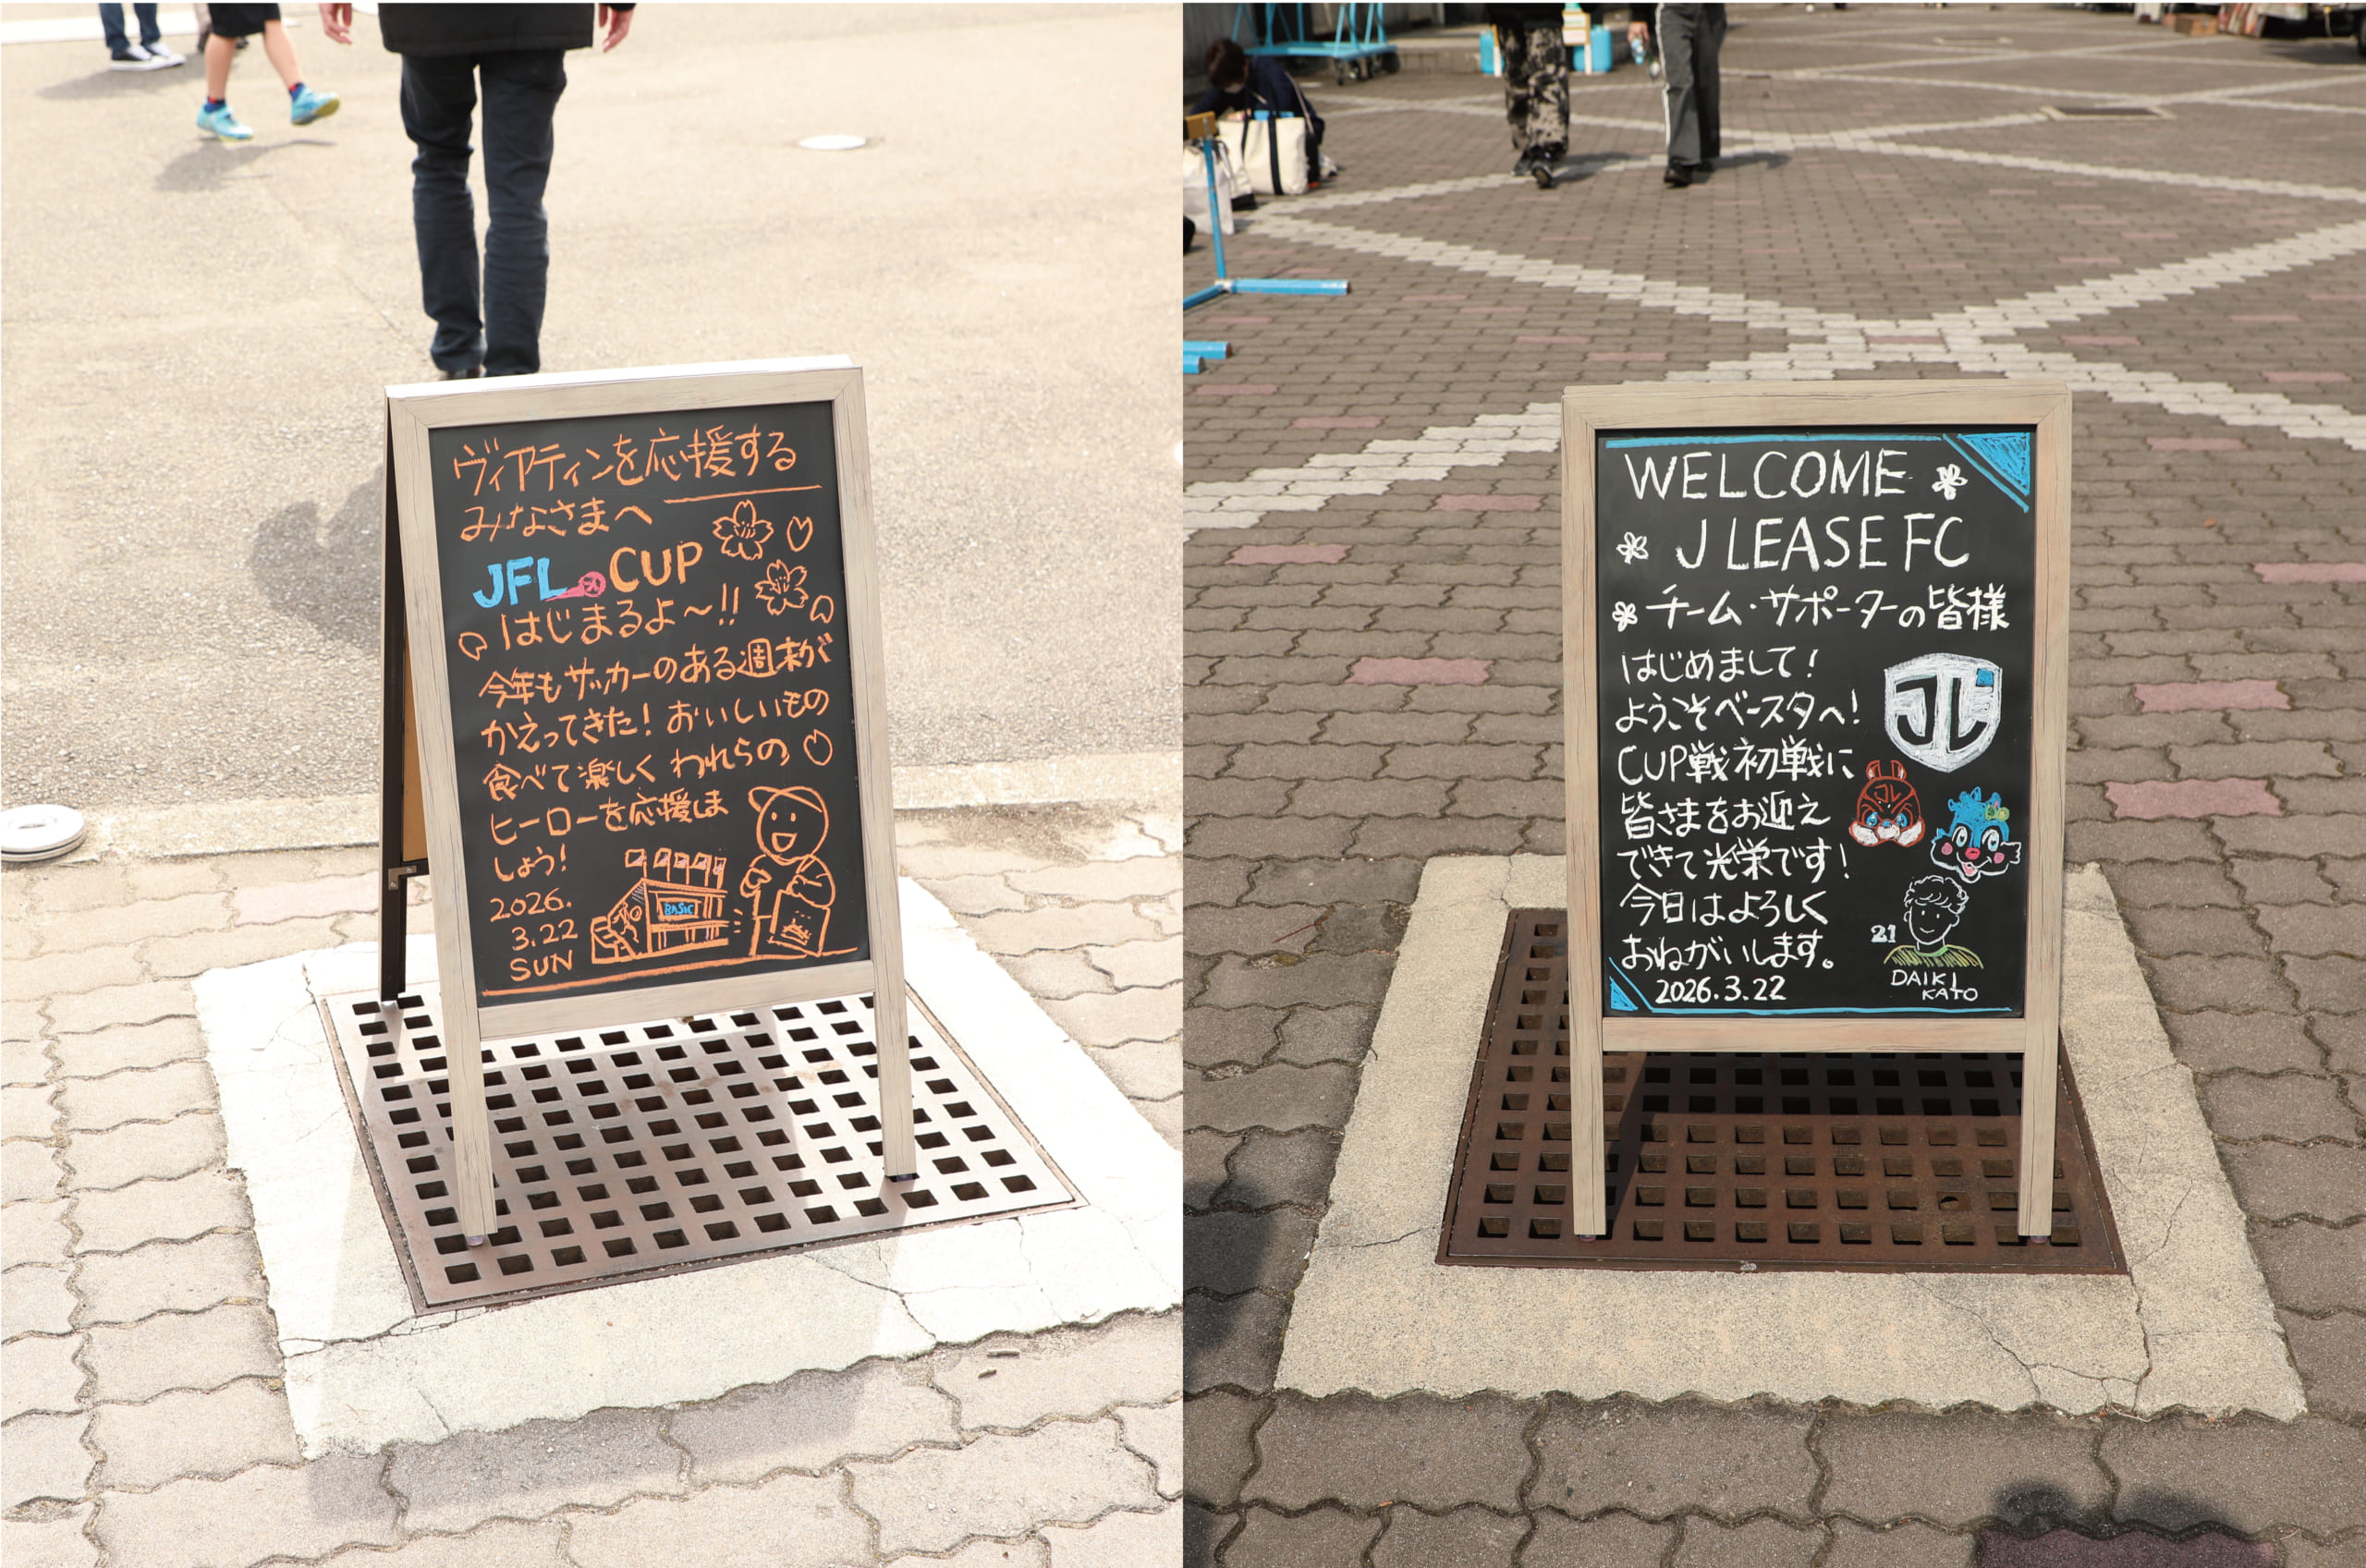 ヴィアティンを応援する
みなさまへ
JFL CUP
はじまるよ〜!!
今年もサッカーのある週末が
かえってきた！おいしいもの
食べて楽しくわれらの
ヒーローを応援しま
しょう！
2026.
3.22
SUN
BASIC
WELCOME
J LEASE FC
チーム・サポーターの皆様
はじめまして！
ようこそベースタへ！
CUP戦初戦に
皆さまをお迎え
できて光栄です！
今日はよろしく
おねがいします。
2026.3.22
JL
21
DAIKI
KATO